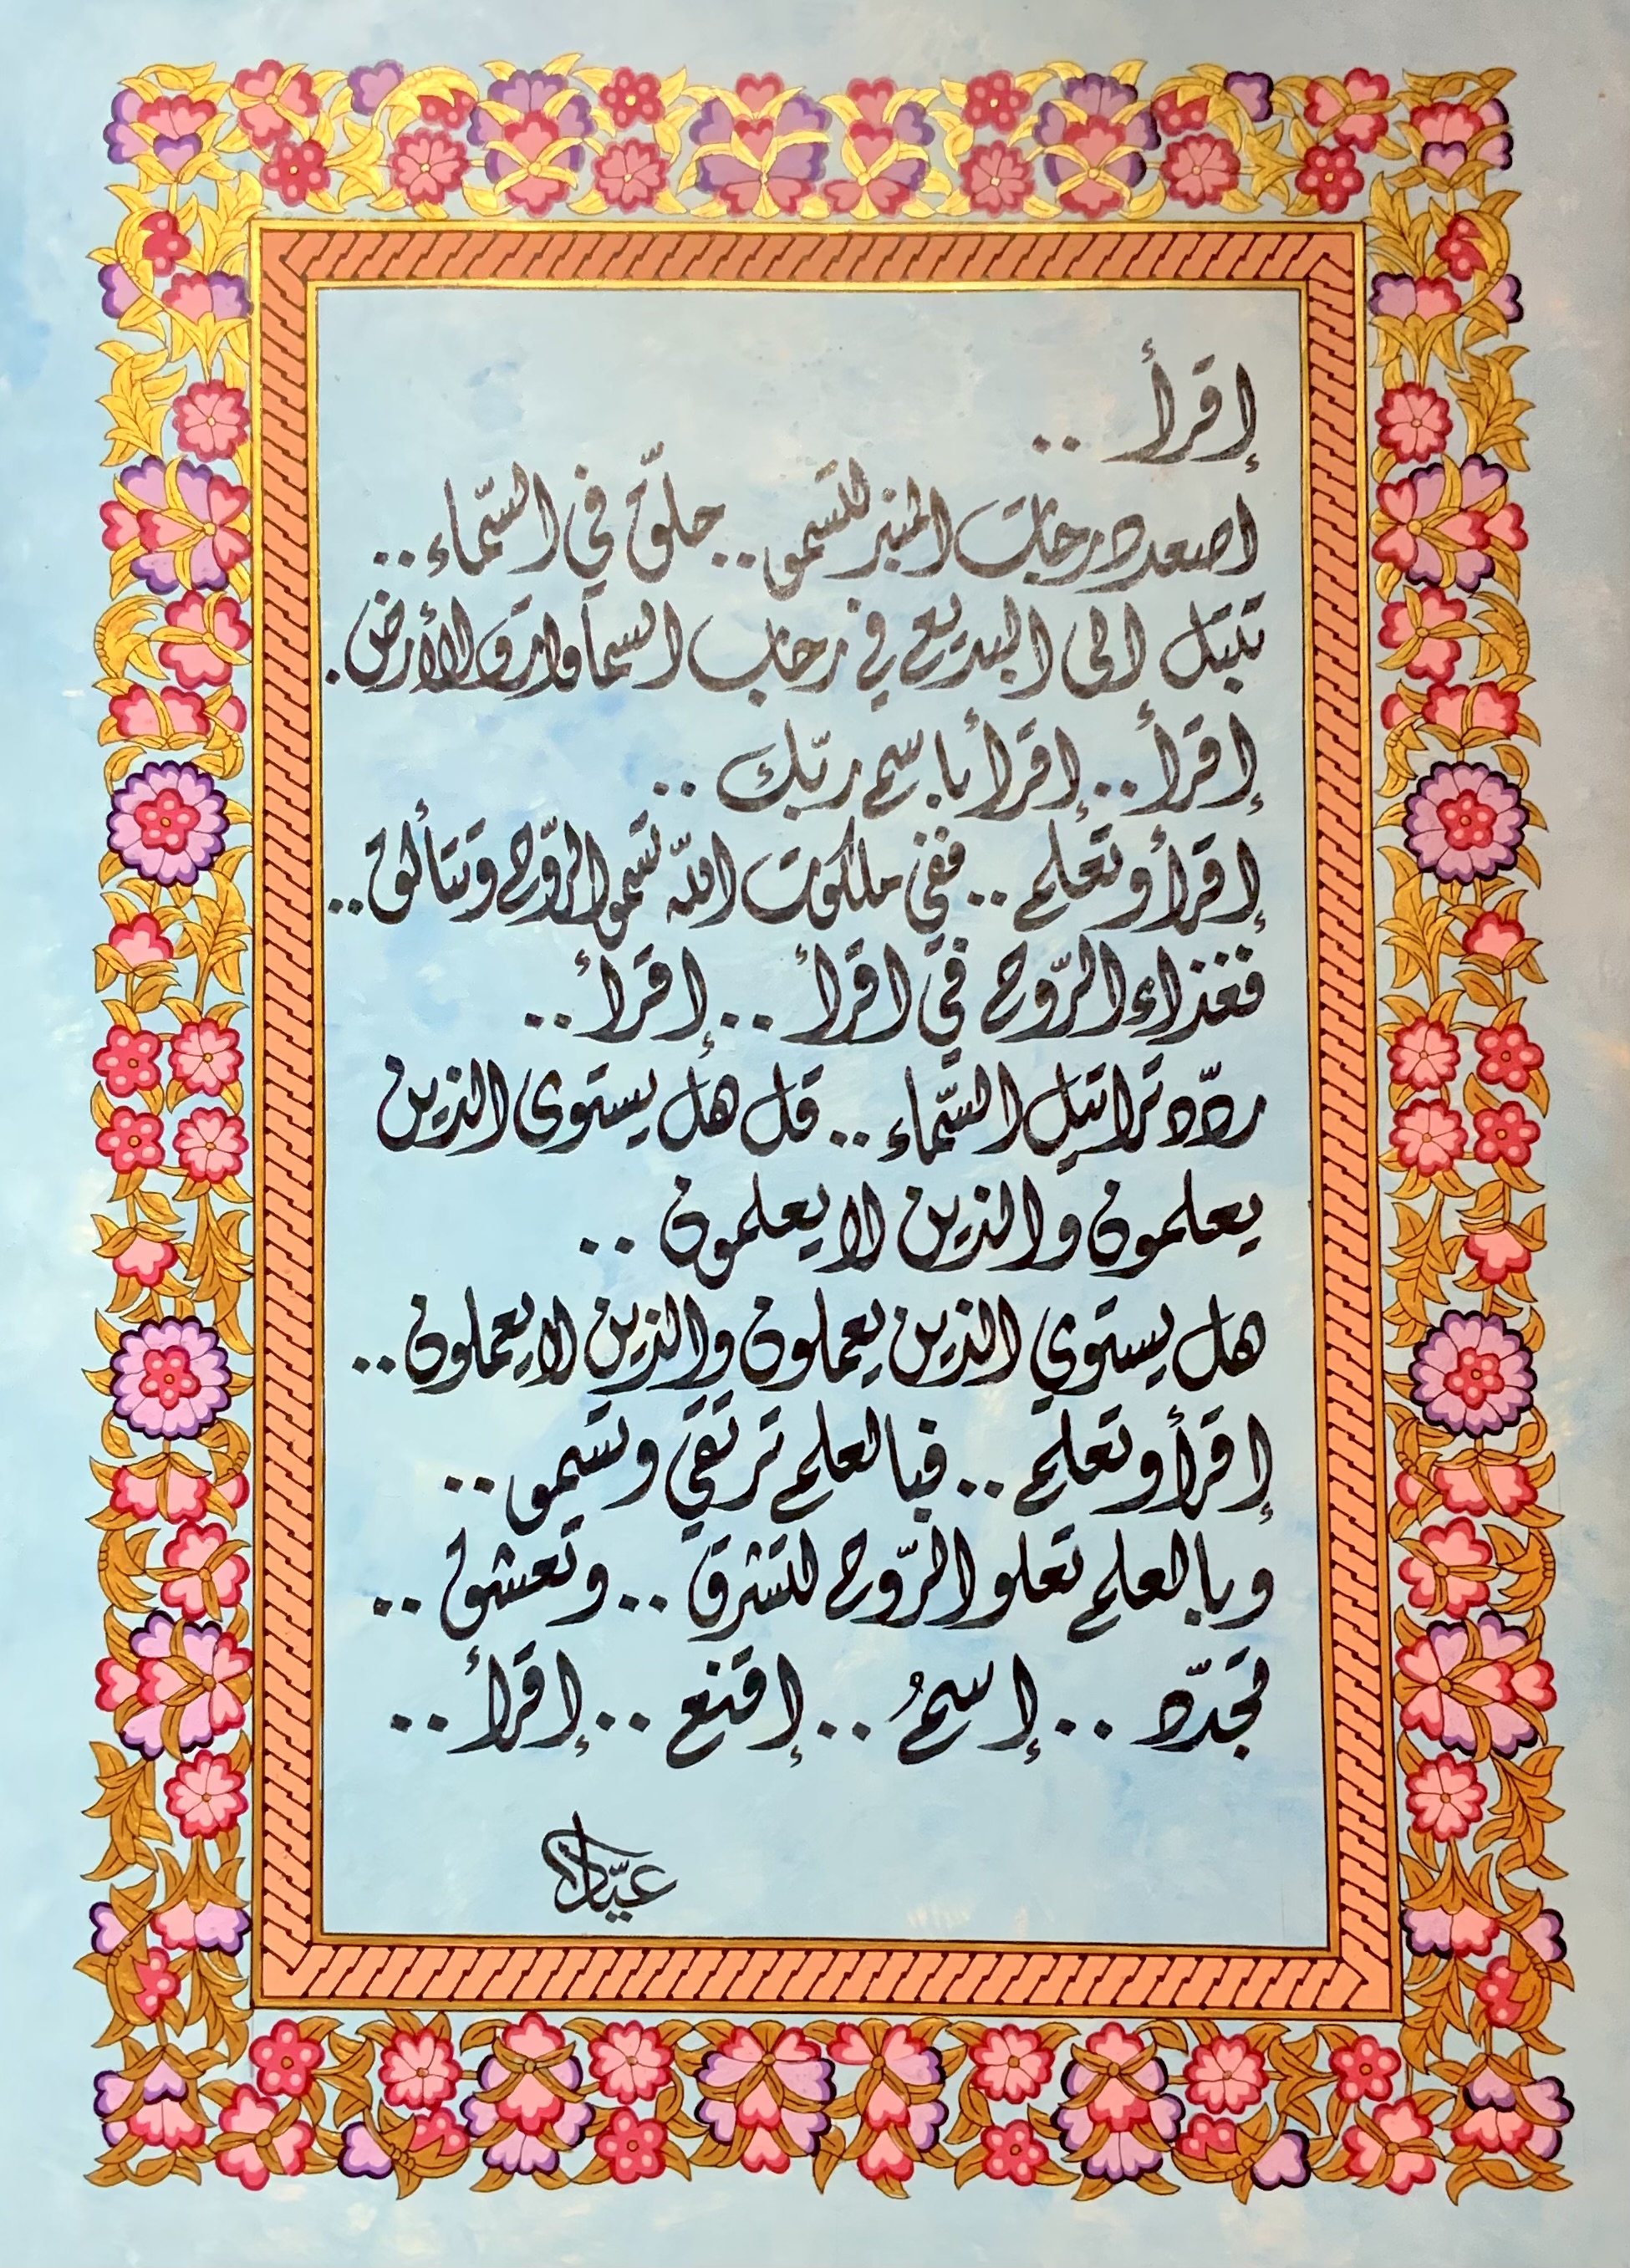 إقرأ ..
اصعد درجات المنبر لتسمو .. حلّق في السّماء ..
تبتل الى البديع في رحاب السماوات والأرض .
إقرأ .. إقرأ باسم ربّك ..
إقرأ وتعلم .. ففي ملكوت الله تسمو الرّوح وتتألق ..
فغذاء الرّوح في اقرأ .. إقرأ ..
ردّد تراتيل السّماء .. قل هل يستوى الذين
يعلمون والذين لا يعلمون ..
هل يستوي الذين يعملون والذين لا يعملون ..
إقرأ وتعلم .. فبالعلم ترتقي وتسمو ..
وبالعلم تعلو الرّوح لتشرق .. وتعشق ..
تجدّد .. إسمُ .. إقنع .. إقرأ ..
عيّاد